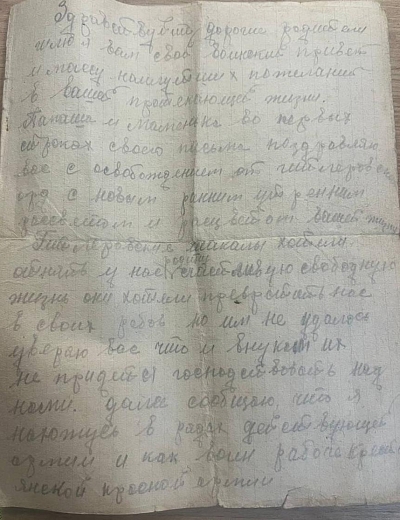 Здравствуйте дорогие родители
шлю я вам свой воинский привет
и массу наилутших пожеланий
в вашей протекающей жизни.
Папаша и Мамочка во первых
строках своего письма поздравляю
вас с освобождением от гитлеровск
с новым ранним утренним
рассветом и расцветом вашей жизни
Гитлеровские шакалы хотели
отнять у нас родину счастливую свободную
жизнь они хотели превратить нас
в своих рабов но им не удалось
уверяю вас что и внукам их
не придется господствовать над
нами. далее сообщаю, что я
нахожусь в рядах действующей
армии и как воин рабоче кресть
янской красной армии